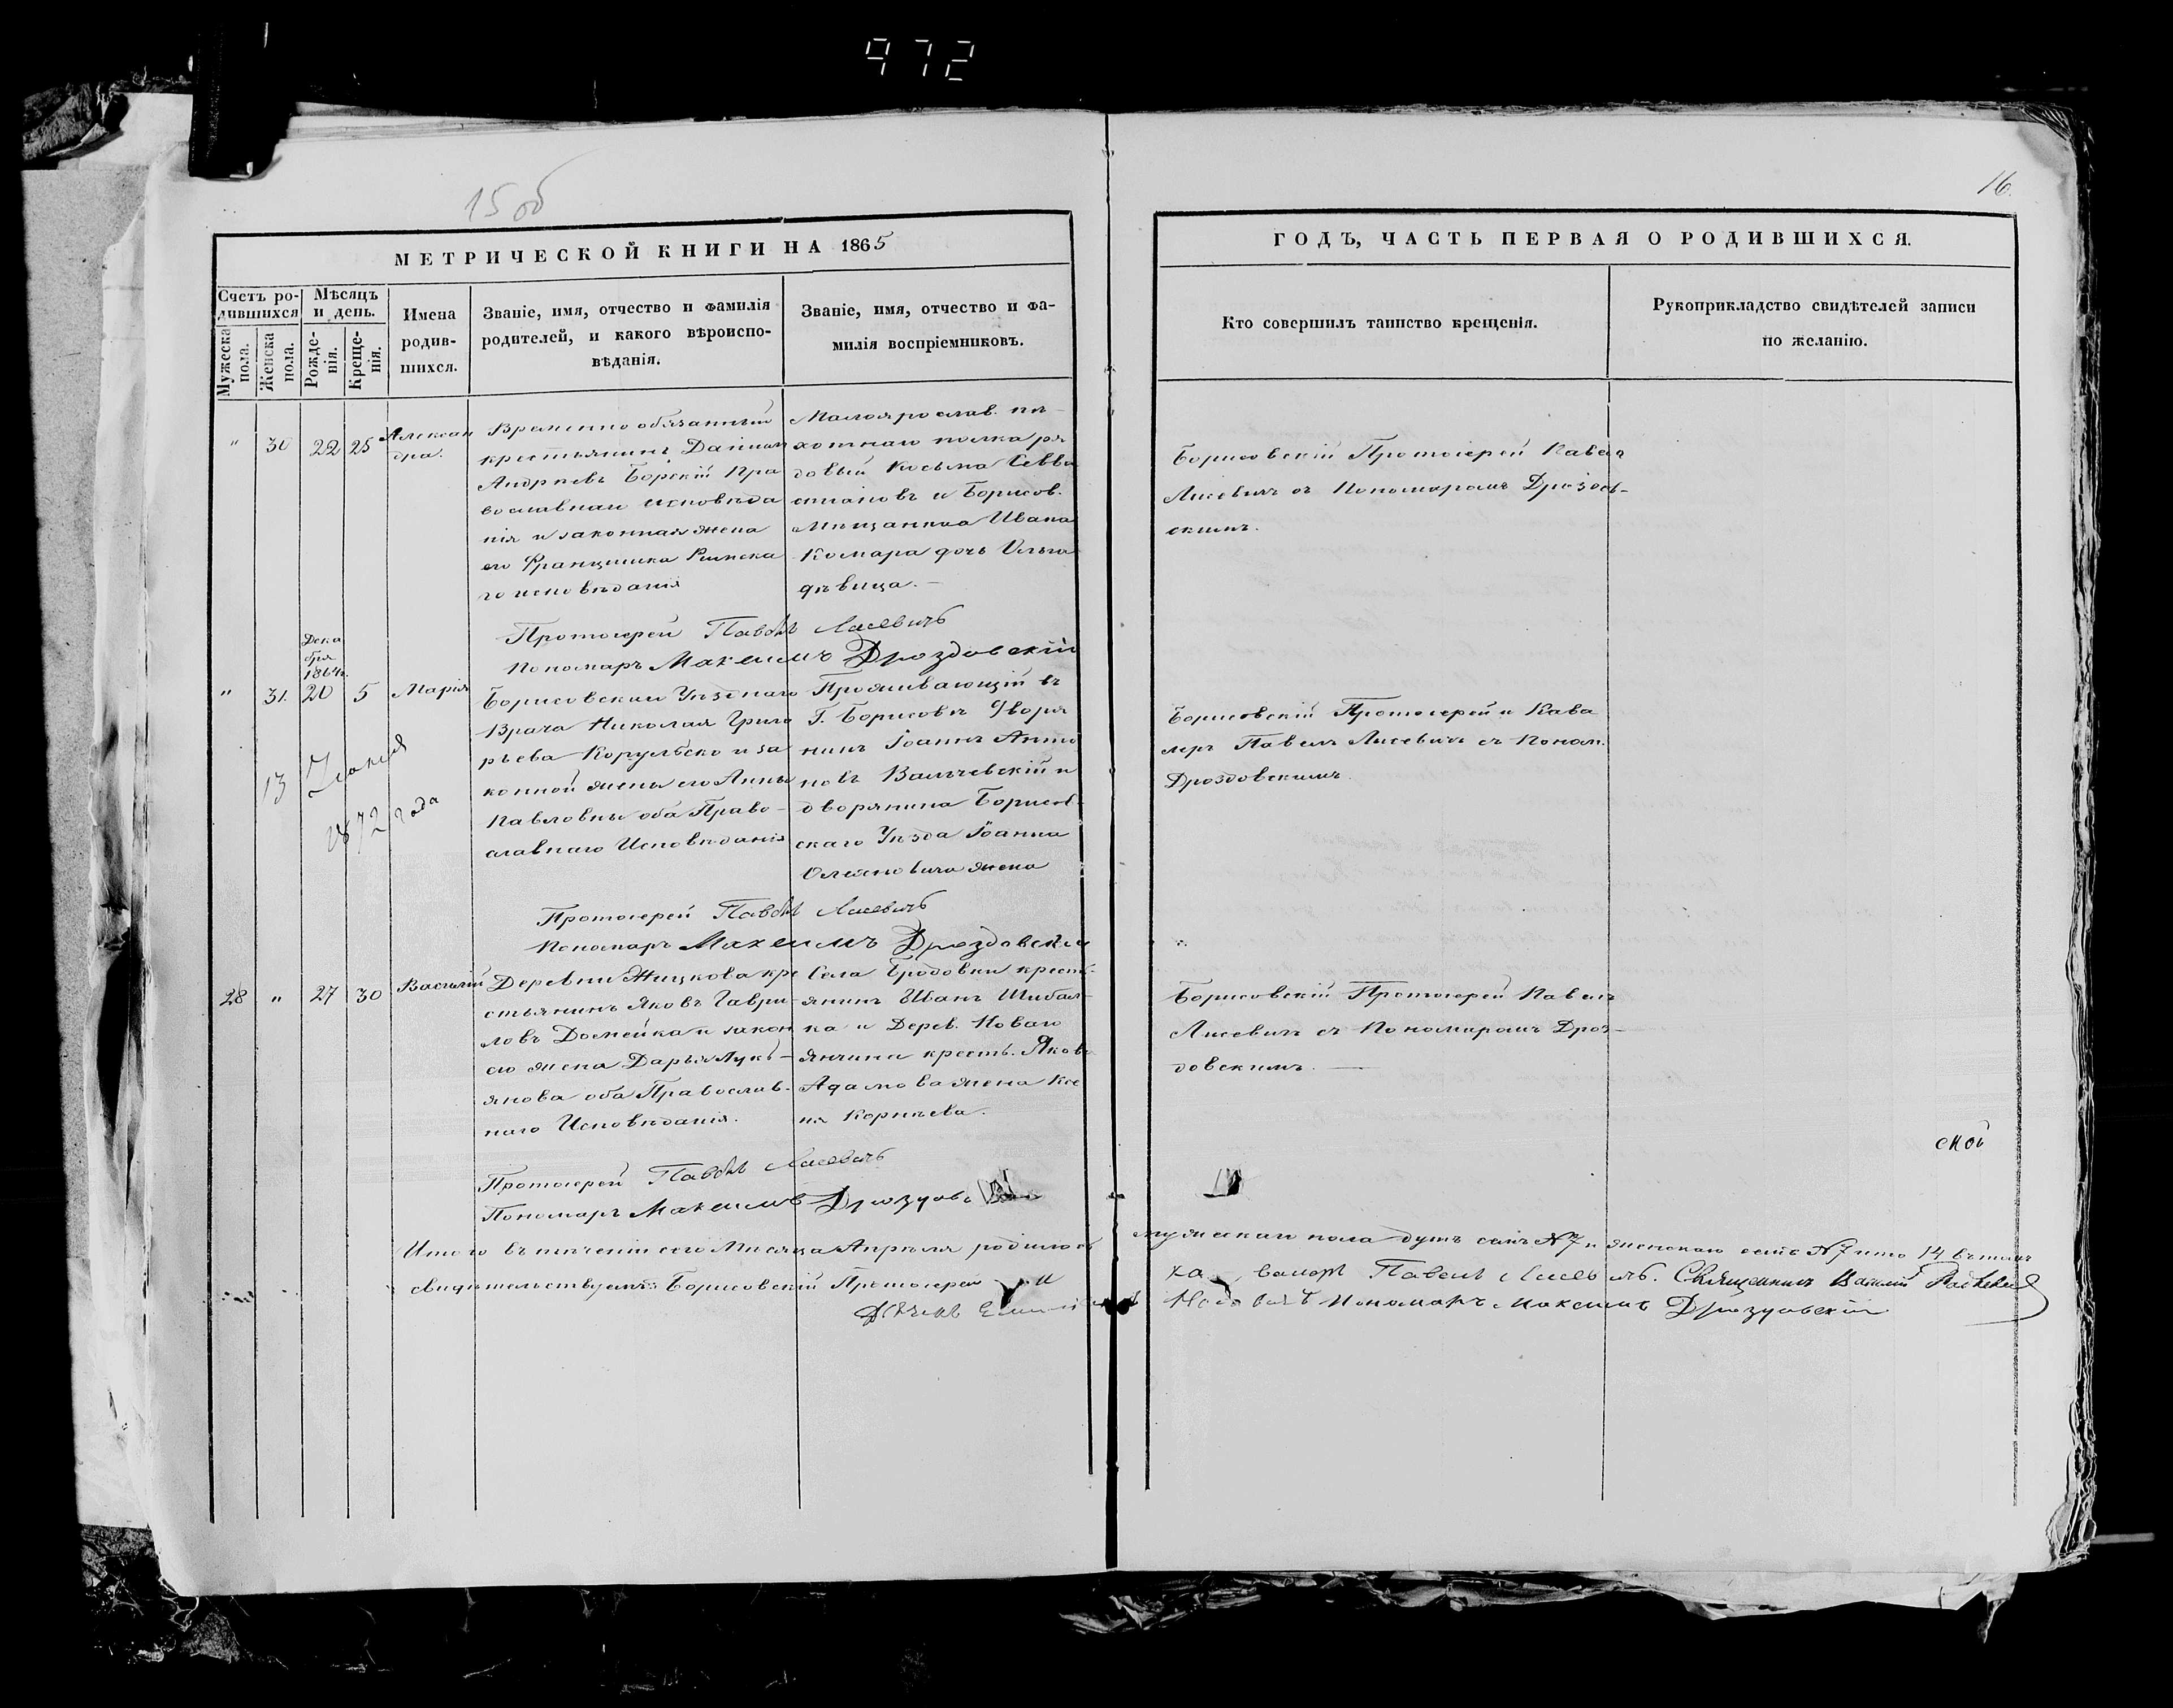 972
15 об
16.
МЕТРИЧЕСКОЙ КНИГИ НА 1865
Счетъ ро-
дившихся
Мѣсяцъ
и день.
Мужеска
пола.
Женска
пола.
Рожде-
нія.
Креще-
нія.
Имена
родив-
шихся.
Званіе, имя, отчество и фамилія
родителей, и какого вѣроиспо-
вѣданія.
Званіе, имя, отчество и фа-
милія воспріемниковъ.
ГОДЪ, ЧАСТЬ ПЕРВАЯ О РОДИВШИХСЯ.
Кто совершилъ таинство крещенія.
Рукоприкладство свидѣтелей записи
по желанію.
" 30 22 25
Алексан
дра.
Временно обязанный
крестьянинъ Даніил
Андреевъ Борскій Пра
вославнаго исповѣда
нія и законная жена
его Францишка Римска
го исповѣданія
Малоярослав. пѣ-
хотнаго полка ря
довый Косьма Севва
стіановъ и Борисов.
Мѣщанина Ивана
Комара дочь Ольга
дѣвица. —
Борисовскій Протоіерей Павелъ
Лисевичъ съ Пономаромъ Дроздов-
скимъ.
Протоіерей Павелъ Лисевичъ
Пономарь Максимъ Дроздовскій
Дека
бря
1864г.
" 31. 20 5 Марія
Борисовскаго Уѣзднаго
Врача Николая Григо
рьева Корульско и за
конной жены его Анны
Павловны оба Право-
славнаго Исповѣданія
Проживающій въ
Г. Борисовѣ Дворя
нинъ Іоаннъ Анто
новъ Вальчевскій и
дворянина Борисов-
скаго Уѣзда Іоанна
жена
Борисовскій Протоіерей и Кава
леръ Павелъ Лисевичъ съ Поном.
Дроздовскимъ.
13
1872 года
Протоіерей Павелъ Лисевичъ
Пономарь Максимъ Дроздовскій
28 " 27 30 Василій
Деревни Жицкова кре
стьянинъ Яковъ Гаври-
ловъ Домейка и закон
его жена Дарья Лукь-
янова оба Православ-
наго Исповѣданія.
Села Бродовки кресть-
янинъ Иванъ Шибал-
ка и Дерев. Новаго
Янчина кресть. Якова
Адамова жена Ксе
нія Корнѣева.
Борисовскій Протоіерей Павелъ
Лисевичъ съ Пономаромъ Дроз-
довскимъ. —
Протоіерей Павелъ Лисевичъ
Пономарь Максимъ
ской
Итого въ теченіи сего Мѣсяца Апрѣля родилось мужескаго пола душъ семь №7 и женскаго семь №7 итого 14 въ томъ
свидѣтельствуемъ: Борисовскій Протоіерей и Павелъ Лисевичъ. Священникъ Василій
Пономарь Максимъ Дроздовскій